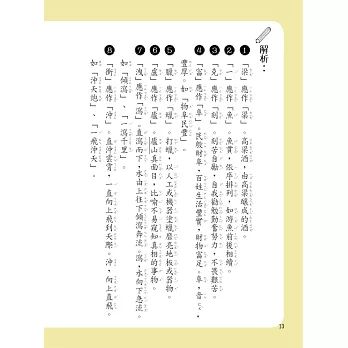 解析：
❶「梁」應作「粱」。高粱酒，由高粱釀成的酒。
❷「一」應作「魚」。魚貫，依序排列，如游魚前後相續。
❸「克」應作「刻」。刻苦自勵，自我勸勉勤奮努力，不畏艱苦。
❹「富」應作「阜」。民殷財阜，百姓生活豐實，財物富足。阜，音
豐厚。如「物阜民豐」。
❺「臘」應作「蠟」。打蠟，以人工或機器塗蠟磨亮地板或器物。
❻「盧」應作「廬」。廬山真面目，比喻不易窺知真相的事物。
❼「洩」應作「瀉」。直瀉而下，水由上往下傾瀉奔流。瀉，水向下急流。
如「傾瀉」、「一瀉千里」。
❽「衝」應作「沖」。直沖雲霄，一直向上飛到天際。沖，向上直飛。
如「沖天炮」、「一飛沖天」。
13